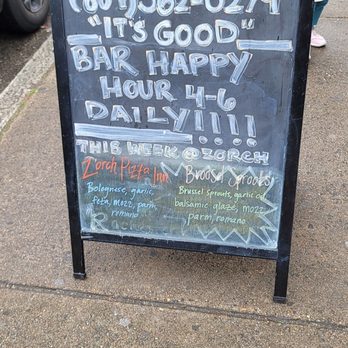 "IT'S GOOD"
BAR HAPPY
HOUR 4-6
DAILY!!!!
THIS WEEK @ ZORCH
Zorch Pizza Inn
Bolognese, garlic,
feta, mozz, parm,
romano
Brussel Sprouts
Brussel sprouts, garlic oil,
balsamic glaze, mozz,
parm, romano